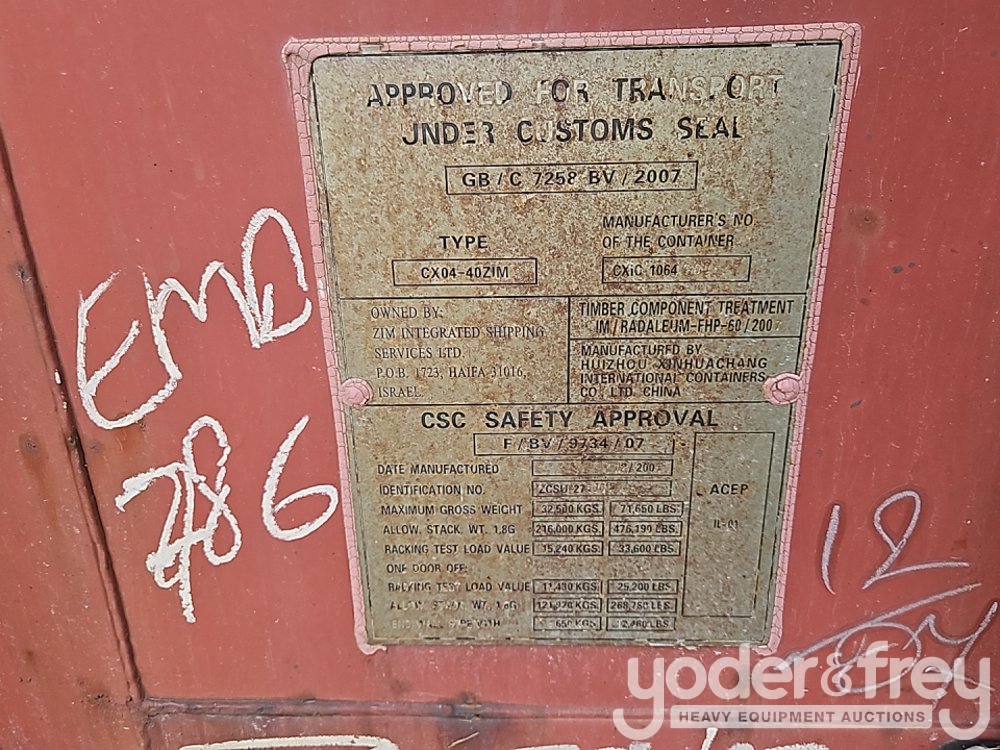 APPROVED FOR TRANSPORT
UNDER CUSTOMS SEAL
GB / C 7258 BV / 2007
TYPE
CX04-40ZIM
MANUFACTURER'S NO.
OF THE CONTAINER
CXIC 1064
OWNED BY:
ZIM INTEGRATED SHIPPING
SERVICES LTD.
P.O.B. 1723, HAIFA 31016,
ISRAEL
TIMBER COMPONENT TREATMENT
IM / RADALEUM-FHP-60 / 200
MANUFACTURED BY
HUIZHOU XINHUACHANG
INTERNATIONAL CONTAINERS
CO., LTD. CHINA
CSC SAFETY APPROVAL
F / BV / 9734 / 07
DATE MANUFACTURED / 200
IDENTIFICATION NO. ZCSU 27
MAXIMUM GROSS WEIGHT 32,500 KGS. 71,650 LBS.
ALLOW. STACK. WT. 1.8G 216,000 KGS. 476,190 LBS.
RACKING TEST LOAD VALUE 15,240 KGS. 33,600 LBS.
ONE DOOR OFF:
RACKING TEST LOAD VALUE 11,430 KGS. 25,200 LBS.
WT. 1.8G KGS. LBS.
KGS. LBS.
ACEP
IL-01
EMD
786
12
yoder&frey
HEAVY EQUIPMENT AUCTIONS